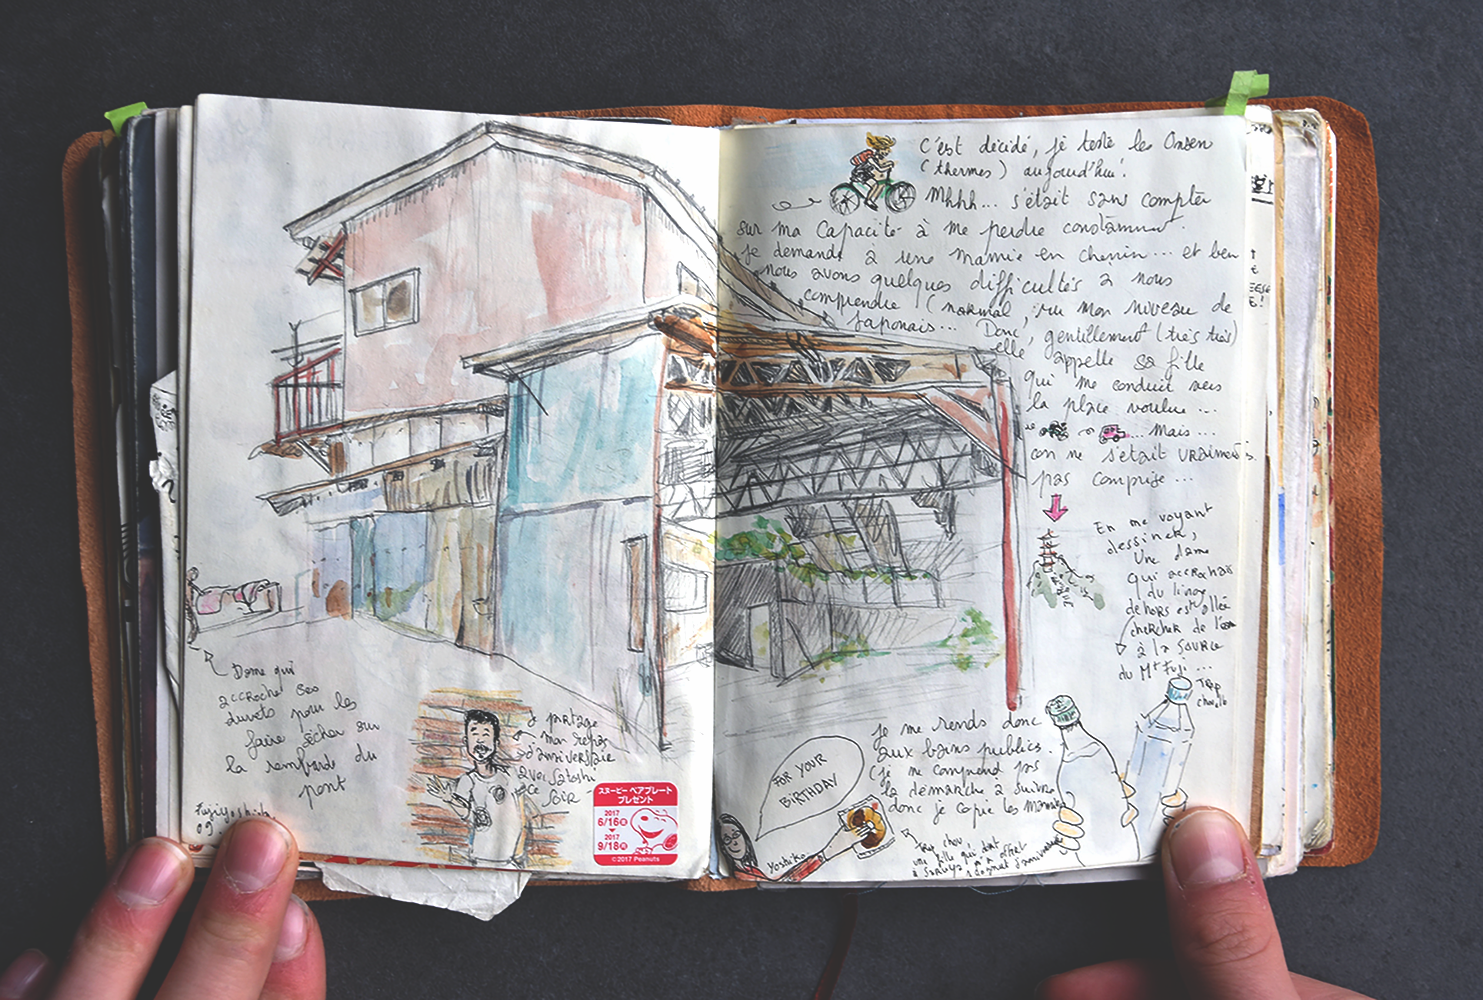 Dame qui
accroche ses
duvets pour les
faire sécher sur
la rembarde du
pont
Fujiyoshida
09.
Je partage
mon repas
d'anniversaire
avec Satoshi
ce soir
スヌーピー ペアプレート
プレゼント
2017
6/16
2017
9/18
©2017 Peanuts
C'est décidé, je teste les Onsen
(thermes) aujourd'hui!
Mhhh... s'était sans compter
sur ma capacité à me perdre constamment.
Je demande à une mamie en chemin... et ben
nous avons quelques difficultés à nous
comprendre (normal, vu mon niveau de
Japonais... Donc, gentillement (très très)
elle appelle sa fille
qui me conduit vers
la place voulue...
... Mais...
on ne s'était vraiment
pas comprise...
En me voyant
dessiner,
Une dame
qui accrochait
du linge
dehors est allée
chercher de l'eau
à la source
du Mt Fuji...
Trop
chouette
Je me rends donc
aux bains publics.
(je ne comprend pas
la démarche à suivre
donc je copie les mamies
FOR YOUR
BIRTHDAY
Yoshiko
Trop chou
une fille qui
m'a offert